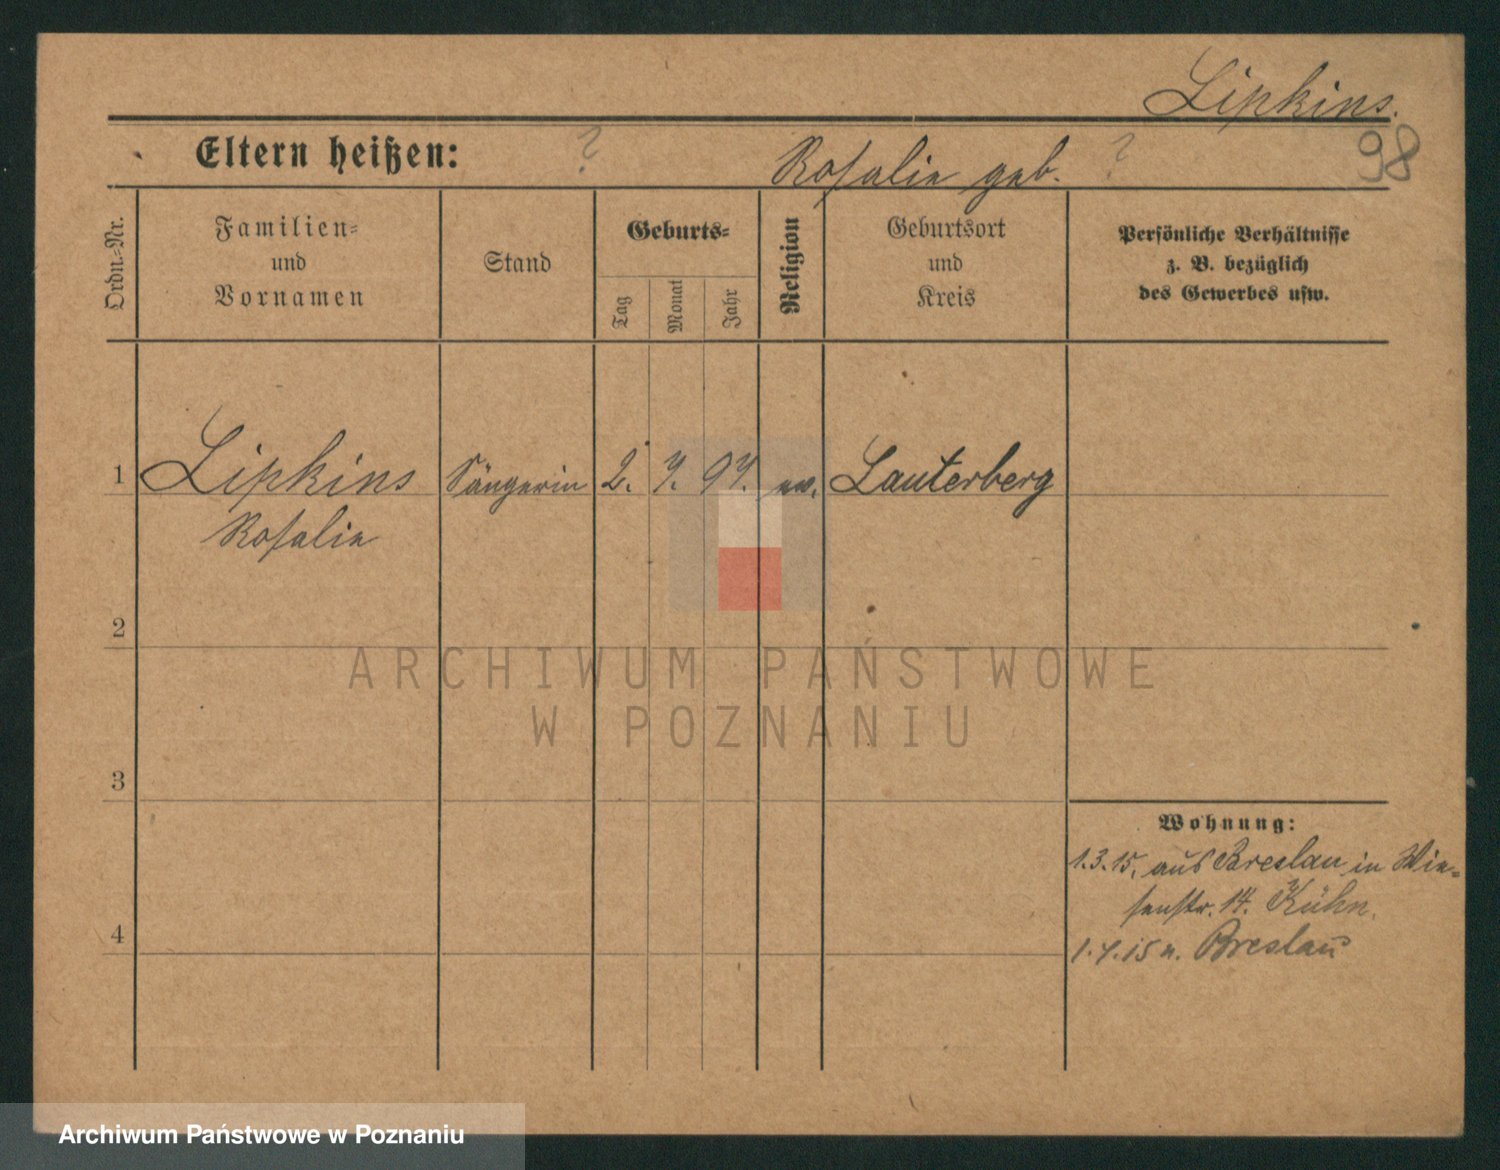 Lipkins.
98
Eltern heißen: ? Rosalie geb. ?
Ordn.-Nr.
Familien-
und
Vornamen
Stand
Geburts-
Tag
Monat
Jahr
Religion
Geburtsort
und
Kreis
Persönliche Verhältnisse
z. B. bezüglich
des Gewerbes usw.
1 Lipkins Sängerin 2. 7. 97. ev. Lauterberg
Rosalie
2
3
4
Wohnung:
1.3.15. aus Breslau in Wie-
senstr. 14. Kühn.
1.4.15 n. Breslau
ARCHIWUM PAŃSTWOWE
W POZNANIU
Archiwum Państwowe w Poznaniu